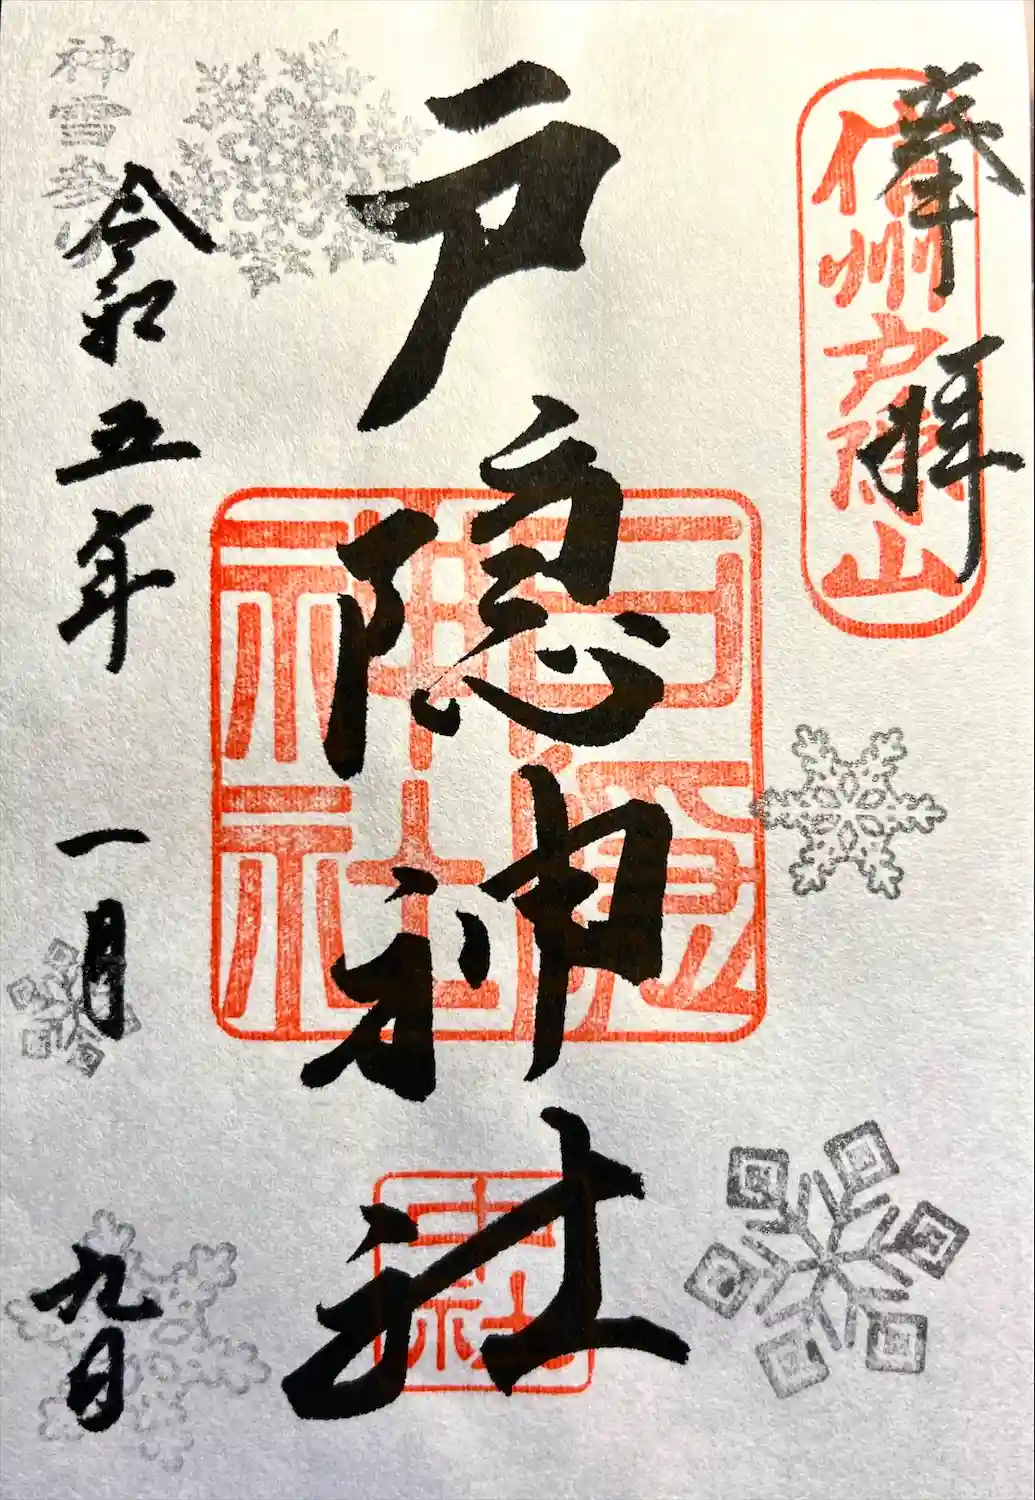 奉拝
信州戸隠山
戸隠神社
戸隠神社
中社
令和五年
一月
九日
神雪参